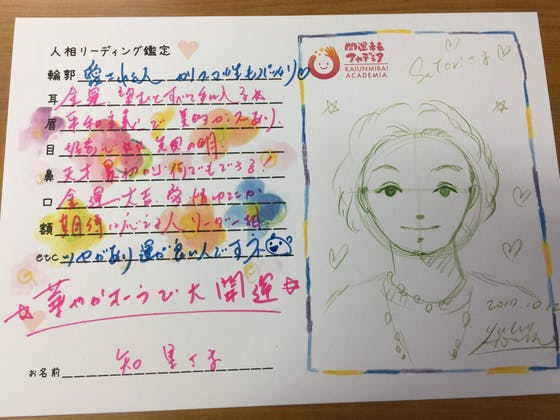 人相リーディング鑑定
輪郭 愛される人 カリスマ性もバッチリ
耳 金運 望むとすべて手に入る
眉 平和主義で 美的センスあり
目 好奇心 先見の明
鼻 天才 最初から何でもできる!
口 金運大吉 愛情ゆたか
額 期待に応える人 リーダー相
etc ツヤがあり運が良い人です
華やかオーラで大開運
お名前
開運未来
アカデミア
KAIUNMIRAI
ACADEMIA
Satoriさま